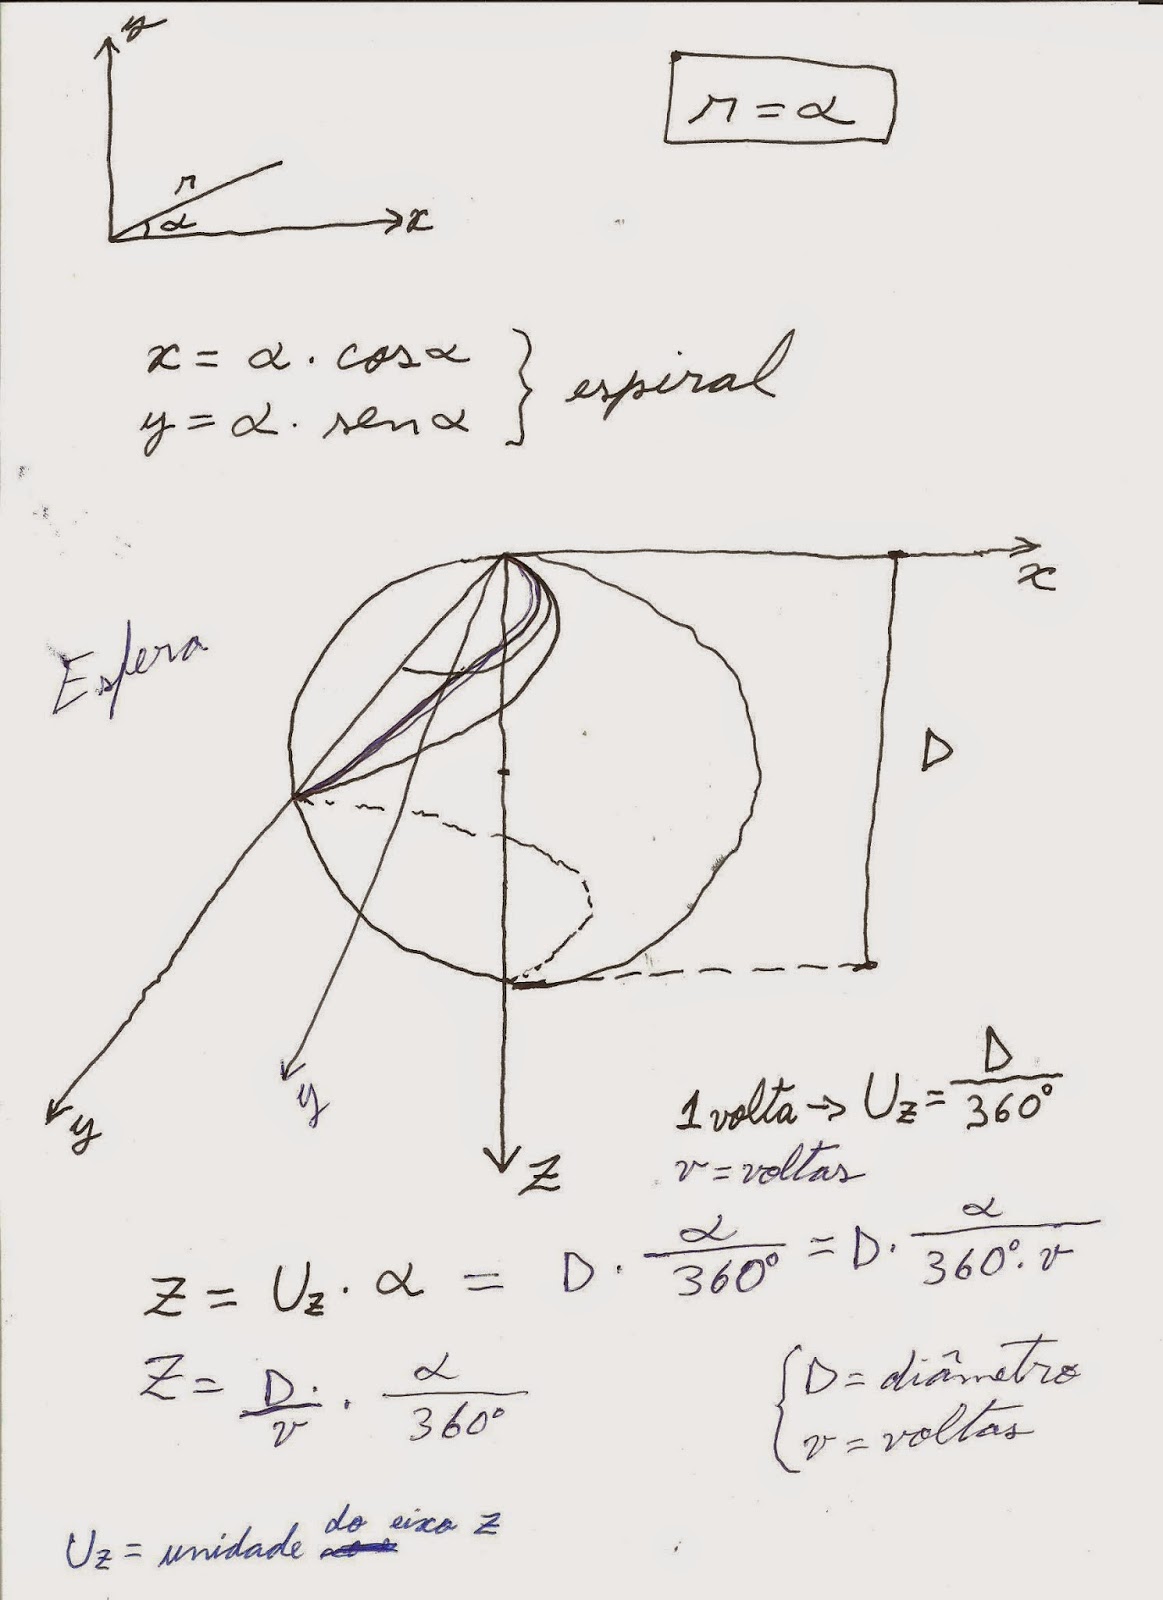 y
r = α
r
α
x
x = α · cos α
y = α · sen α
} espiral
x
Esfera
D
y
y
Z
1 volta → Uz = D/360°
v = voltas
Z = Uz · α = D · α/360° = D · α/360°·v
Z = D·/v · α/360°
{ D = diâmetro
v = voltas
Uz = unidade do eixo z